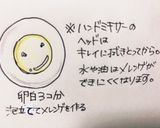 ※ハンドミキサーの
ヘッドは
キレイに拭きとってから。
水や油はメレンゲが
できにくくなります。
卵白3コ分
泡立ててメレンゲを作る